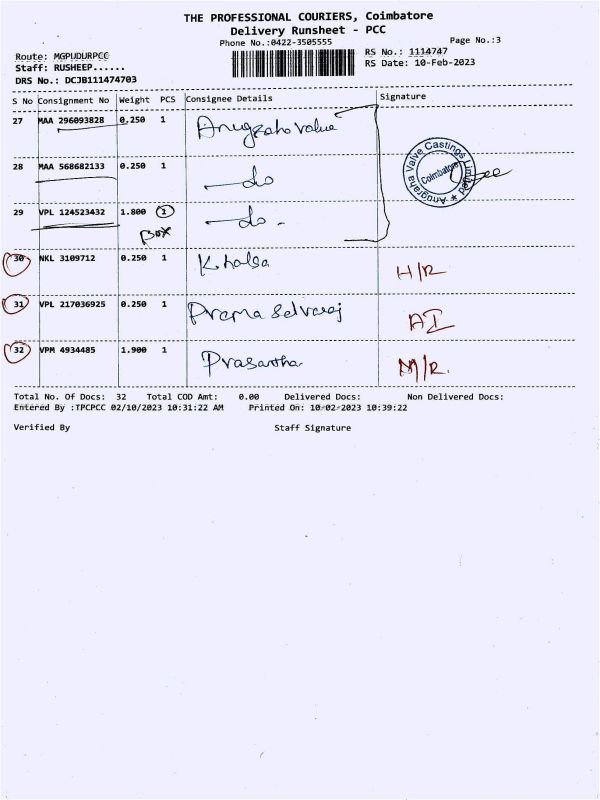 THE PROFESSIONAL COURIERS, Coimbatore
Delivery Runsheet - PCC
Phone No.:0422-3505555
Page No.:3
Route: MGPUDURPCC
RS No.: 1114747
Staff: RUSHEEP......
RS Date: 10-Feb-2023
DRS No.: DCJB111474703
S No Consignment No Weight PCS Consignee Details Signature
27 MAA 296093828 0.250 1 Anugraha Value
28 MAA 568682133 0.250 1 do
Anugraha Valve Castings Limited
Coimbatore
29 VPL 124523432 1.800 1 do -
Box
30 NKL 3109712 0.250 1 Khalsa H/R
31 VPL 217036925 0.250 1 Prema Selvaraj AI
32 VPM 4934485 1.900 1 Prasantha N/R.
Total No. Of Docs: 32 Total COD Amt: 0.00 Delivered Docs: Non Delivered Docs:
Entered By :TPCPCC 02/10/2023 10:31:22 AM Printed On: 10-02-2023 10:39:22
Verified By Staff Signature